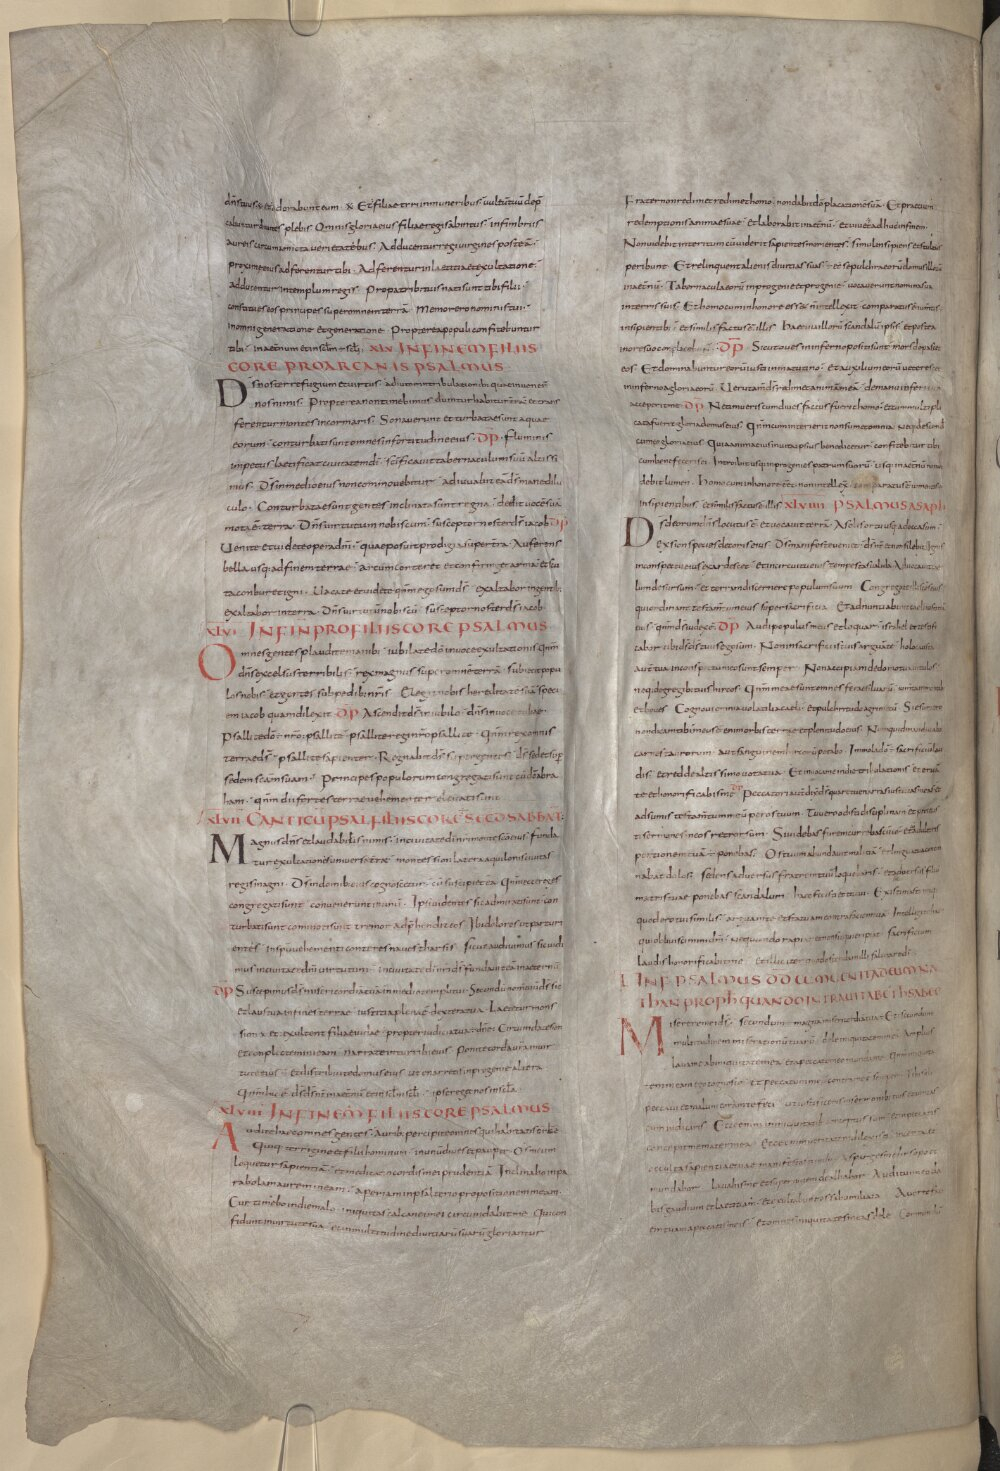 dn̄s tuus & adorabunt eum · & Et filiae tyri in muneribus uultū tuū dep̄
cabunt diuites plebis Omnis gloria eius filiae regis ab intus · in fimbriis
aureis circumamicta uarietatibus · Adducentur regi uirgines post eā ·
proximae eius adferentur tibi · Adferentur in laetitia et exultatione ·
adducentur in templum regis · Pro patribus tuis nati sunt tibi filii ·
constitues eos principes super omnem terrā · Memor ero nominis tui ·
in omni generatione et generatione · Propterea populi confitebuntur
tibi · in aeternum et in sclm̄ scl̄i · xlv IN FINEM FILIIS
CORE PRO ARCANIS PSALMUS
Ds̄ noster refugium et uirtus · adiutor in tribulationib· quae inuener̄
nos nimis · Propterea non timebimus dum turbabitur terra et trans
ferentur montes in cor maris · Sonauerunt et turbatae sunt aquae
eorum · conturbati sunt montes in fortitudine eius · dp̄ · Fluminis
impetus laetificat ciuitatem dī · sc̄ificauit tabernaculum suū altissi
mus · Ds̄ in medio eius non commouebitur · adiuuabit eā ds̄ mane dilu
culo · Conturbatae sunt gentes inclinata sunt regna · dedit uocem suā
mota ē terra · Dn̄s uirtutum nobiscum · susceptor noster ds̄ iacob dp̄
Uenite et uidete opera dn̄i · quae posuit prodigia super terrā · Auferens
bella usq· ad finem terrae · arcum conteret et confringet arma · et scu
ta conburet igni · Uacate et uidete qm̄ ego sum ds̄ · exaltabor in gentib·
exaltabor in terra · Dn̄s uirtutū nobiscū · susceptor noster ds̄ iacob ·
xlvi IN FIN PRO FILIIS CORE PSALMUS
Omnes gentes plaudite manib· · iubilate dō in uoce exultationis qm̄
dn̄s excelsus terribilis · rex magnus super omnē terrā · subiecit popu
los nobis · et gentes sub pedib· nr̄is · Elegit nobis hereditatē suā speci
em iacob quam dilexit · dp̄ · Ascendit ds̄ in iubilo · dn̄s in uoce tubae ·
Psallite dō nr̄o psallite · psallite regi nr̄o psallite · Qm̄ rex omnis
terrae ds̄ · psallite sapienter · Regnabit ds̄ super gentes · ds̄ sedet sup̄
sedem scām suam · Principes populorum congregati sunt cū dō abra
ham · qm̄ dii fortes terrae uehementer eleuati sunt
xlvii CANTICŪ PSAL FILIIS CORE SECD SABBAT
Magnus dn̄s et laudabilis nimis · in ciuitate dī nr̄i in monte sc̄o eius · Funda
tur exultatione uniuersae terrae · montes sion latera aquilonis ciuitas
regis magni · Ds̄ in domib· eius cognoscetur · cū suscipiet eā · Qm̄ ecce reges
congregati sunt · conuenerunt in unū · Ipsi uidentes sic admirati sunt · con
turbati sunt commoti sunt · tremor adp̄hendit eos · Ibi dolores ut parturi
entes · in spū uehementi conteres naues tharsis · Sicut audiuimus sic uidi
mus in ciuitate dn̄i uirtutum · in ciuitate dī nr̄i ds̄ fundauit eā in aeternū
dp̄ Suscepimus ds̄ misericordiā tuā in medio templi tui · Secundū nomen tuū ds̄ sic
et laus tua in fines terrae · iustitia plena ē dextera tua · Laetetur mons
sion & et exultent filiae iudae · propter iudicia tua dn̄e · Circumdate sion
et complectimini eam · narrate in turribus eius · Ponite corda ur̄a in uir
tute eius · et distribuite domus eius · ut enarretis in progenie altera ·
Qm̄ hic ē ds̄ ds̄ nr̄ in aeternū · et in sclm̄ scl̄i · ipse reget nos in scl̄a ·
xlviii IN FINEM FILIIS CORE PSALMUS
Audite haec omnes gentes · aurib· percipite omnes qui habitatis orbē
Quiq· terrigenae et filii hominum · in unū diues et pauper · Os meum
loquetur sapientiam · et meditatio cordis mei prudentiam · Inclinabo in pa
rabolam aurem meam · aperiam in psalterio propositionem meam ·
Cur timebo in die malo · iniquitas calcanei mei circumdabit me · Qui con
fidunt in uirtute sua · et in multitudine diuitiarū suarū gloriantur
Frater non redimet redimet homo · non dabit dō placationē suā · Et pretium
redemptionis animae suae · et laborabit in aet̄nū · et uiuet adhuc in finem ·
Non uidebit interitum cū uiderit sapientes morientes · simul insipiens et stultus
peribunt Et relinquent alienis diuitias suas · et sepulchra eorū domus illorū
in aet̄nū · Tabernacula eorū in progenie et progenie · uocauerunt nomina sua
in terris suis · Et homo cum in honore esset n̄ intellexit · comparatus ē iumentis
insipientib· · et similis factus ē illis · Haec uia illorū scandalū ipsis · et postea
in ore suo complacebunt · dp̄ · Sicut oues in inferno positi sunt · mors depascet
eos · Et dominabuntur eorū iusti in matutino · et auxilium eorū ueterescet
in inferno a gloria eorū · Uerumtam̄ ds̄ redimet animā meā · de manu inferi cū
acceperit me · dp̄ · Ne timueris cum diues factus fuerit homo · et cum multipli
cata fuerit gloria domus eius · Qm̄ cum interierit non sumet omnia · neq· descendet
cum eo gloria eius · Quia anima eius in uita ipsius benedicetur · confitebitur tibi
cum benefeceris ei · Introibit usq· in progenies patrum suorū · usq· in aet̄nū non ui
debit lumen · Homo cum in honore esset non intellex̄ · comparatus ē iumentis
insipientibus · et similis factus ē illis xlviiii PSALMUS ASAPH
Ds̄ deorum dn̄s locutus ē · et uocauit terrā · A solis ortu usq· ad occasum ·
Ex sion species decoris eius Ds̄ manifeste ueniet · ds̄ nr̄ et non silebit · Ignis
in conspectu eius exardescet · et in circuitu eius tempestas ualida Aduocauit cae
lum desursum · et terrā discernere populum suum Congregate illi sc̄os eius
qui ordinant testam̄ eius super sacrificia Et adnuntiabunt caeli iustitiā
eius · qm̄ ds̄ iudex ē · dp̄ Audi populus meus et loquar · israhel et testifi
cabor tibi ds̄ ds̄ tuus ego sum · Non in sacrificiis tuis arguā te · holocausta
autē tua in conspectu meo sunt semper Non accipiam de domo tua uitulos ·
neq· de gregibus tuis hircos · Qm̄ meae sunt omnes ferae siluarū · iumenta in montib·
et boues Cognoui omnia uolatilia caeli · et pulchritudo agri mecū ē Si esuriero
non dicam tibi · meus ē enim orbis terrae et plenitudo eius · Numquid manducabo
carnes taurorum · aut sanguinem hircorū potabo Immola dō sacrificiū lau
dis · et redde altissimo uota tua · Et inuoca me in die tribulationis · et eruā
te et honorificabis me dp̄ Peccatori autē dix̄ ds̄ · quare tu enarras iustitias meas et
adsumis testam̄tum meū per os tuum · Tu uero odisti disciplinam · et proiecis
ti sermones meos retrorsum · Si uidebas furem currebas cū eo · et cū adulteris
portionem tuā ponebas · Os tuum abundauit malitiā · et lingua tua concin
nabat dolos · sedens aduersus fratrem tuum loquebaris · et aduersus filiū
matris tuae ponebas scandalum · haec fecisti et tacui · Existimasti iniq·
quod ero tui similis · arguam te et statuam contra faciem tuā · Intellegite haec
qui obliuiscimini dm̄ · nequando rapiat et non sit qui eripiat · Sacrificium
laudis honorificabit me · et illic iter quo ostendam illi salutare dī ·
L IN F PSALMUS DD CUM UENIT AD EUM NA
THAN PROPH QUANDO INTRAUIT AD BETHSABEE
Miserere mei ds̄ · secundum magnā misericordiā tuā · Et secundum
multitudinem miserationū tuarū · dele iniquitatem meā · Amplius
laua me ab iniquitate mea · et a peccato meo munda me · Qm̄ iniquita
tem meam ego agnosco · et peccatum meū contra me ē semper · Tibi soli
peccaui et malum coram te feci · ut iustificeris in sermonibus tuis et uincas
cum iudicaris · Ecce enim in iniquitatib· conceptus sum · et in peccatis
concepit me mater mea · Ecce enim ueritatem dilexisti · incerta et
occulta sapientiae tuae manifestasti mihi · Asperges me hysopo et
mundabor · lauabis me et super niuem dealbabor · Auditui meo da
bis gaudium et laetitiam · et exultabunt ossa humiliata · Auerte faci
em tuam a peccatis meis · et omnes iniquitates meas dele · Cor mundū